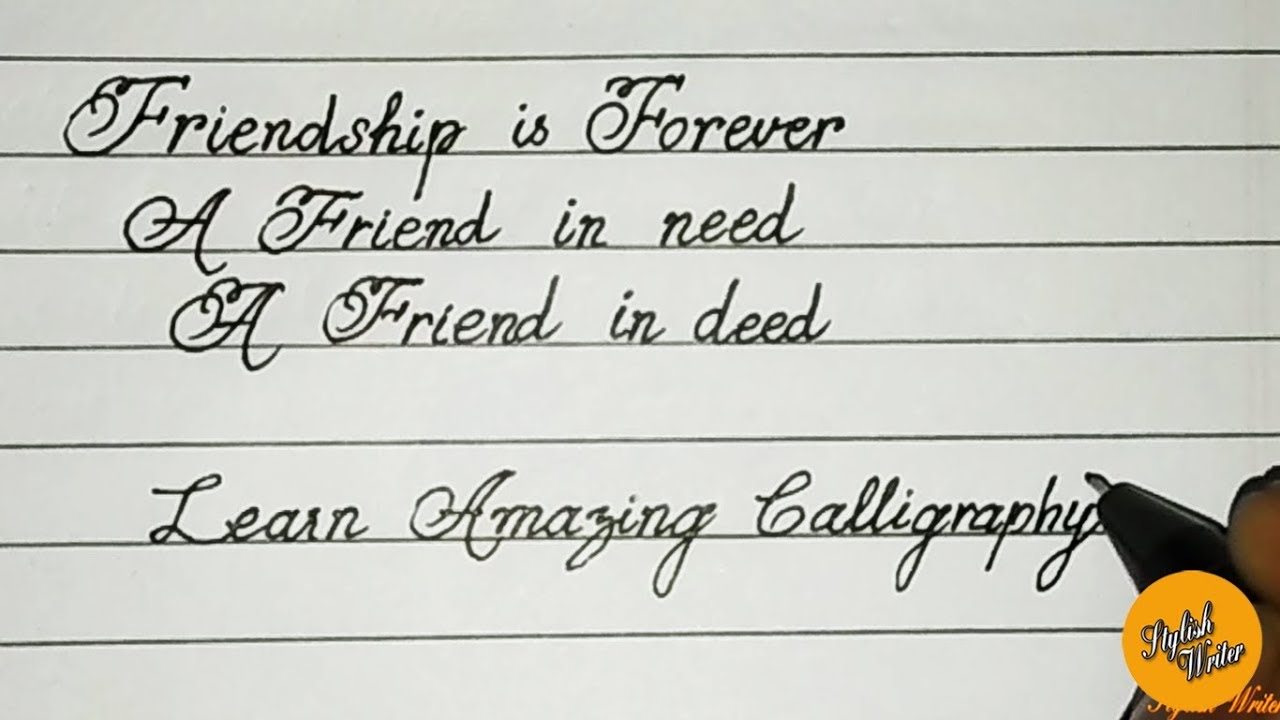 Friendship is Forever
A Friend in need
A Friend in deed
Learn Amazing Calligraphy
Stylish
Writer
Stylish Writer